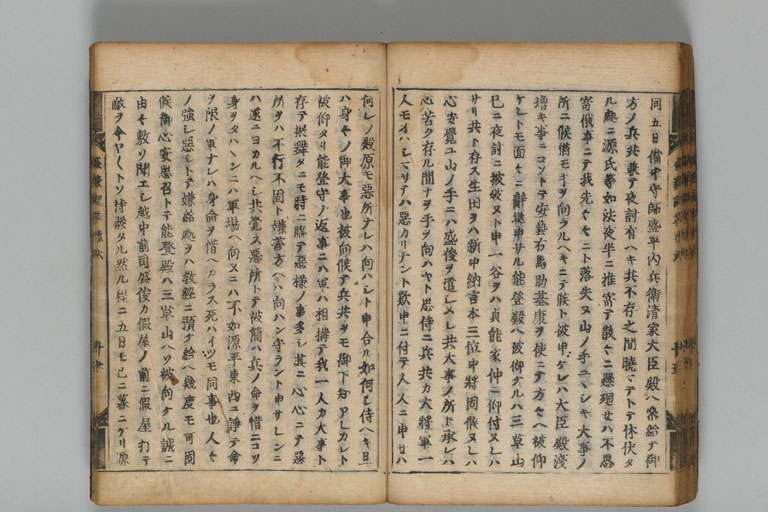 同五日備中守師盛平内兵衛清家大臣殿ヘ参給テ御
方ノ兵共兼テ夜討有ヘキ共不存之間曉マテトテ休伏タ
ル處ニ源氏等如法夜半ニ推寄テ散々ニ懸廻セハ不思
寄俄事ニテ我先々々ニト落失ヌ山ノ手ユヽシキ大事ノ
所ニ候借モイヲ向ラルヘキニテ候ト被申ケレハ大臣殿淺
増キ事ニコソトテ安藝右馬助基康ヲ使ニテ方々ヘ被仰
ケレトモ面々ニ辭退申サル能登殿ヘ被仰ケルハ三草山
已ニ夜討ニ被破ヌト申一谷ヲハ貞能家仲ニ仰付ヌレハ
サリ共ト存ス生田ヲハ新中納言本三位中將固候ヌレハ
心安覺ユ山ノ手ニハ盛俊ヲ遣シヌレ共大事ノ所ト承レハ
心苦ク存ル間ナヲ手ヲ向ハヤト思侍ニ兵共カ大將軍一
人モオハシマサテハ悪カリナント歎申ニ付テ人々ニ申セハ
何レノ殿原モ悪所ナレハ向ハシト申合ル如何シ侍ヘキ且
ハ身々ノ御大事也被向候テ兵共ヲモ御下知アレカシト
被仰タリ能登守ノ返事ニハ軍ハ相構テ我一人カ大事ト
存テ振舞タニモ時ニ臨テ悪様ノ事多シ其ニ心々ニテ悪
所ヲハ不行不固ト嫌善方ヘハ向ハン守ラント申サレンニ
ハ遂ニヨカルヘシ共覺ス悪所トテ被簡ハ兵ノ命ヲ惜ニコソ
身ヲタハヽンニハ軍場ヘ向ヌニハ不如源平東西ニ諍テ命
ヲ限ノ軍ナレハ身命ヲ惜ヘカラス死ハイツモ同事也人々
ノ強シ悪シトテ嫌給處ヲハ教經ニ預ケ給ヘ幾度モ可固
候御心安思召トテ能登殿ハ三草山ヘソ被向ケル誠ニ
由々敷ソ聞エシ越中前司盛俊カ假屋ノ前ニ假屋打テ
敵ヲ今ヤ々々トソ待談タル然ル程ニ五日モ已ニ暮ニケリ源